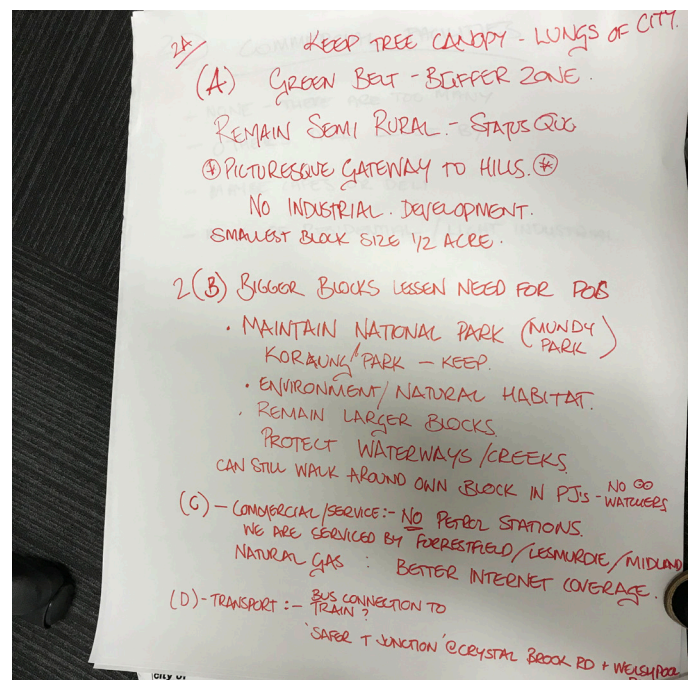 2A/ KEEP TREE CANOPY - LUNGS OF CITY.
(A) GREEN BELT - BUFFER ZONE.
REMAIN SEMI RURAL. - STATUS QUO
* PICTURESQUE GATEWAY TO HILLS. *
NO INDUSTRIAL. DEVELOPMENT.
SMALLEST BLOCK SIZE 1/2 ACRE.
2(B) BIGGER BLOCKS LESSEN NEED FOR POS
• MAINTAIN NATIONAL PARK (MUNDY PARK)
KORAUNG/PARK - KEEP.
• ENVIRONMENT/NATURAL HABITAT.
• REMAIN LARGER BLOCKS
PROTECT WATERWAYS/CREEKS
CAN STILL WALK AROUND OWN BLOCK IN PJ's - NO WATCHERS
(C) - COMMERCIAL/SERVICE:- NO PETROL STATIONS.
WE ARE SERVICED BY FORRESTFIELD/LESMURDIE/MIDLAND
NATURAL GAS : BETTER INTERNET COVERAGE.
(D) - TRANSPORT :- BUS CONNECTION TO TRAIN?
'SAFER T JUNCTION' @ CRYSTAL BROOK RD + WELSHPOOL